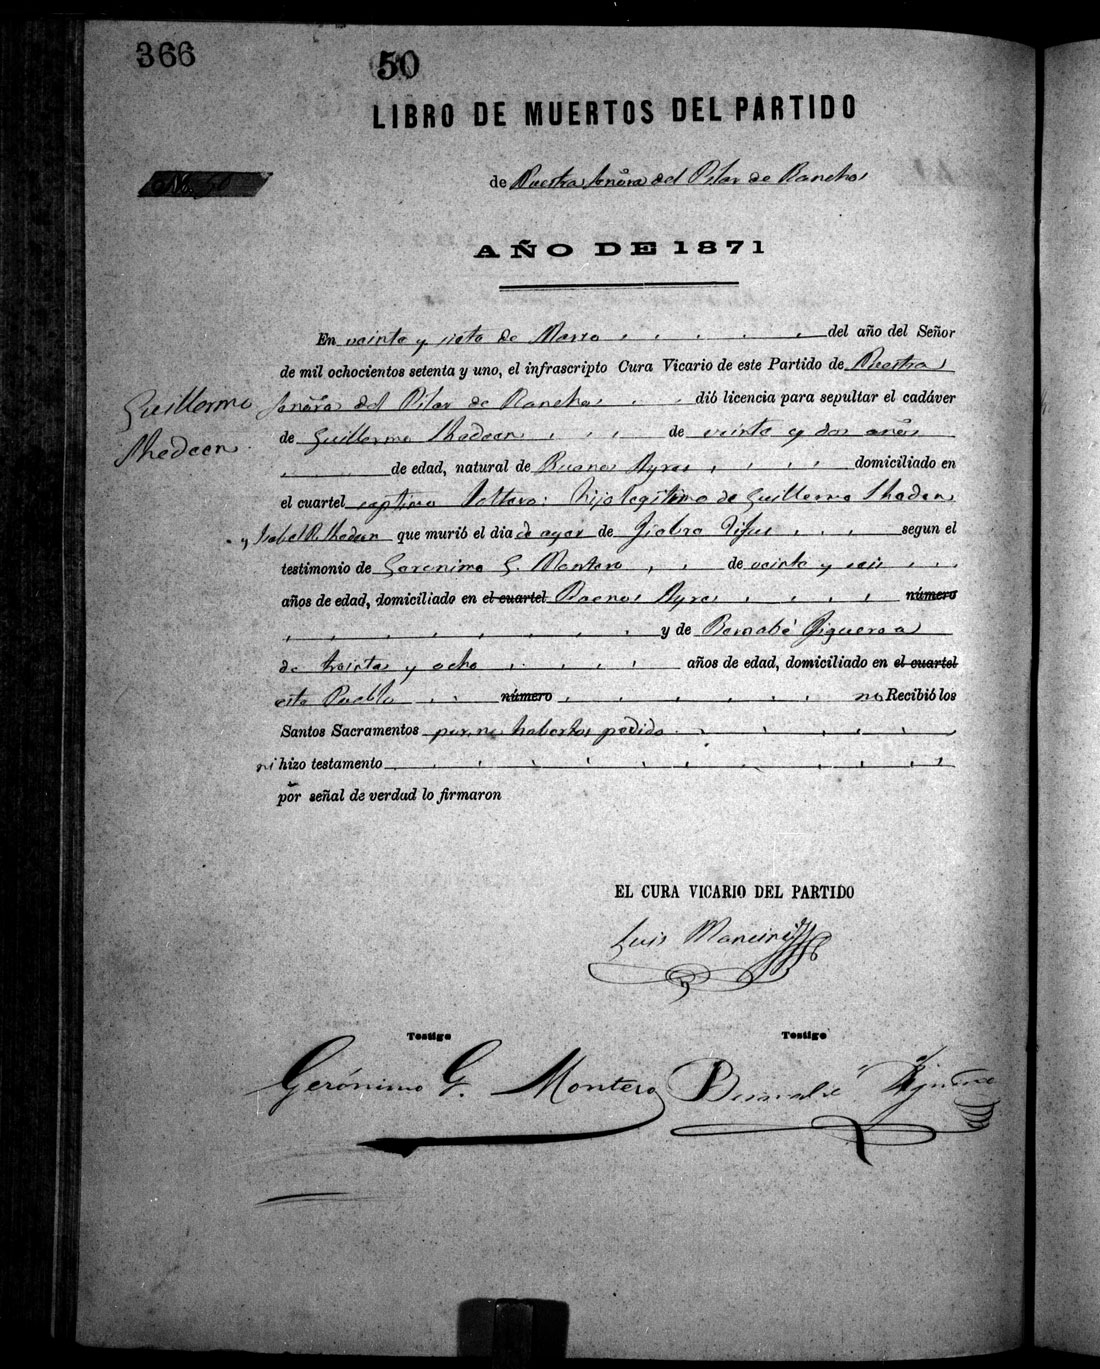 366
50
LIBRO DE MUERTOS DEL PARTIDO
No. 50
de Nuestra Señora del Pilar de Ranchos
AÑO DE 1871
En veinte y siete de Marzo del año del Señor
de mil ochocientos setenta y uno, el infrascripto Cura Vicario de este Partido de Nuestra
Señora del Pilar de Ranchos dió licencia para sepultar el cadáver
Guillermo
Shedeen
de Guillermo Shedeen de veinte y dos años
de edad, natural de Buenos Ayres domiciliado en
el cuartel septimo Soltero: hijo legitimo de Guillermo Sheden
y Isabel R. Shedeen que murió el dia de ayer de Fiebre Tifus segun el
testimonio de Geronimo G. Montero de veinte y seis
años de edad, domiciliado en el cuartel Buenos Ayres número
y de Bernabé Figueroa
de treinta y ocho años de edad, domiciliado en el cuartel
este Pueblo número no Recibió los
Santos Sacramentos por no haberlos pedido
ni hizo testamento
por señal de verdad lo firmaron
EL CURA VICARIO DEL PARTIDO
Luis Mancini
Testigo Testigo
Gerónimo G. Montero Bernabé Figueroa